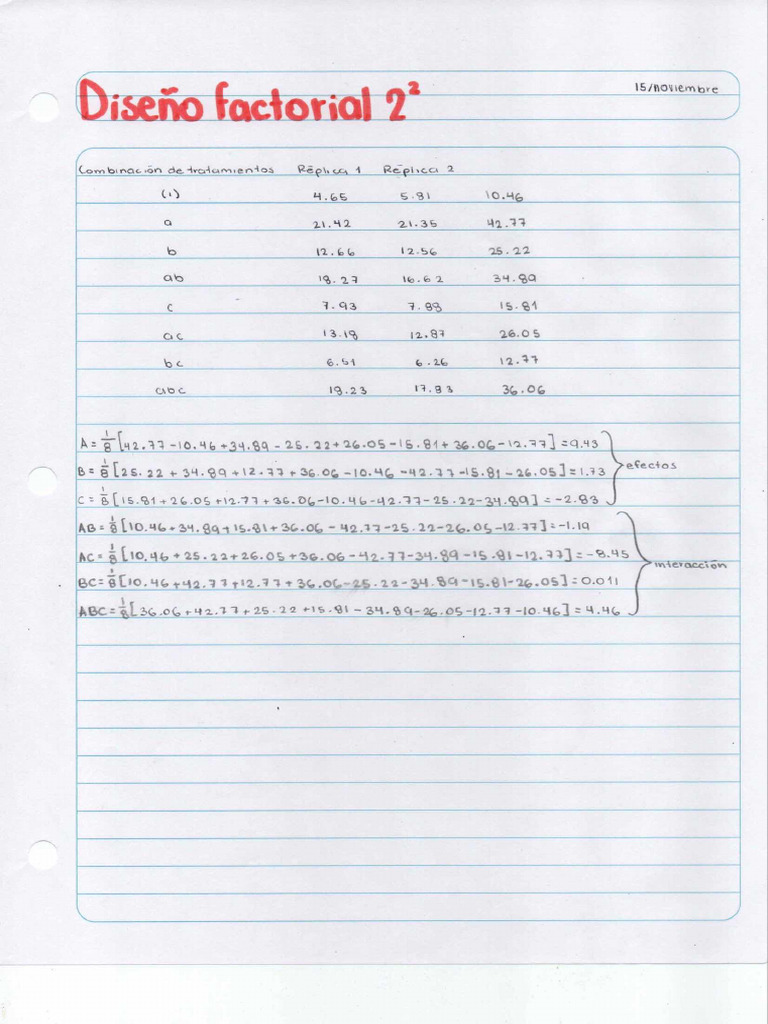 Diseño factorial 2²
15/noviembre
Combinación de tratamientos Réplica 1 Réplica 2
(1) 4.65 5.81 10.46
a 21.42 21.35 42.77
b 12.66 12.56 25.22
ab 18.27 16.62 34.89
c 7.93 7.88 15.81
ac 13.18 12.87 26.05
bc 6.51 6.26 12.77
abc 18.23 17.83 36.06
A = 1/8 [42.77-10.46+34.89-25.22+26.05-15.81+36.06-12.77] = 9.43
B = 1/8 [25.22+34.89+12.77+36.06-10.46-42.77-15.81-26.05] = 1.73 efectos
C = 1/8 [15.81+26.05+12.77+36.06-10.46-42.77-25.22-34.89] = -2.83
AB = 1/8 [10.46+34.89+15.81+36.06-42.77-25.22-26.05-12.77] = -1.19
AC = 1/8 [10.46+25.22+26.05+36.06-42.77-34.89-15.81-12.77] = -8.45 interacción
BC = 1/8 [10.46+42.77+12.77+36.06-25.22-34.89-15.81-26.05] = 0.011
ABC = 1/8 [36.06+42.77+25.22+15.81-34.89-26.05-12.77-10.46] = 4.46